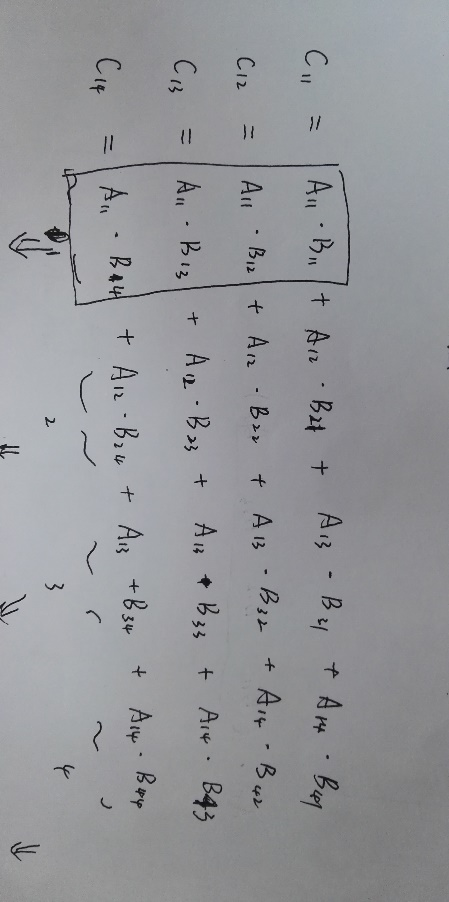 C11 = A11 · B11 + A12 · B21 + A13 - B31 + A14 · B41
C12 = A11 · B12 + A12 · B22 + A13 · B32 + A14 · B42
C13 = A11 · B13 + A12 · B23 + A13 · B33 + A14 · B43
C14 = A11 · B14 + A12 · B24 + A13 + B34 + A14 · B44
1 2 3 4